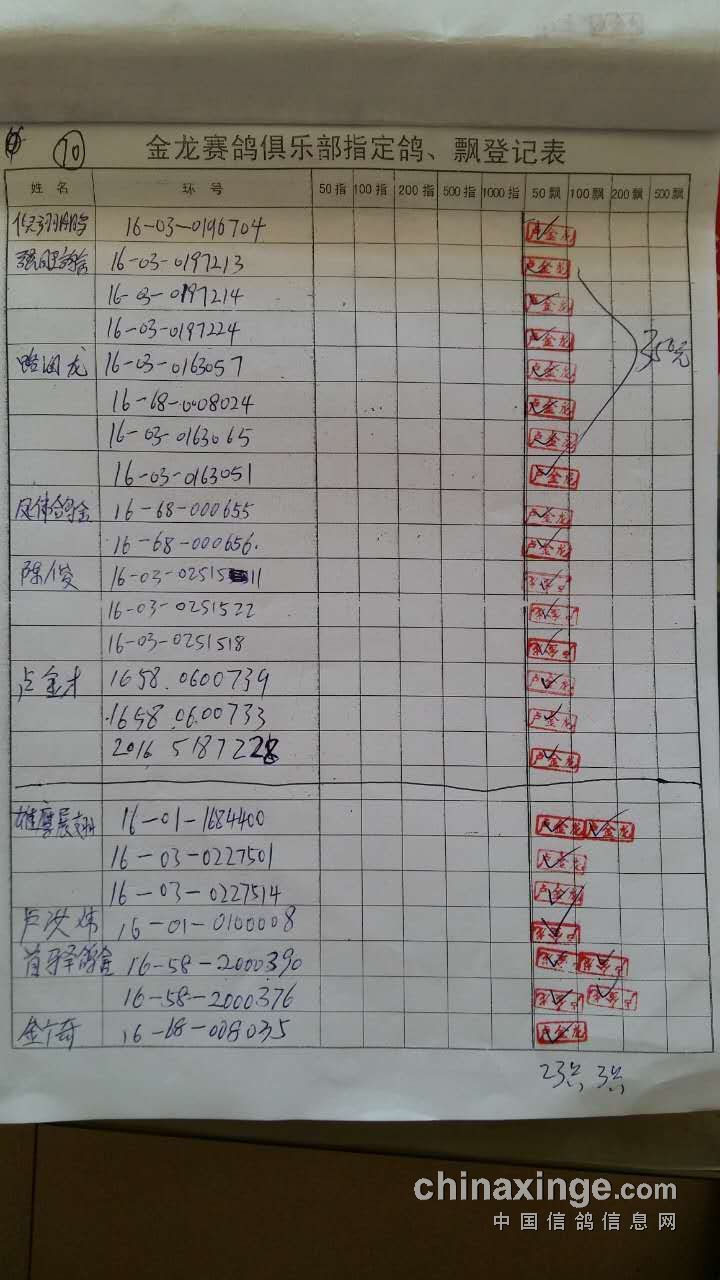 10 金龙赛鸽俱乐部指定鸽、飘登记表
姓名 环号 50指 100指 200指 500指 1000指 50飘 100飘 200飘 500飘
16-03-0196704 卢金龙
16-03-0197213 卢金龙
16-03-0197214 卢金龙
16-03-0197224 卢金龙 350元
路润龙 16-03-0163057 卢金龙
16-68-0008024 卢金龙
16-03-0163065 卢金龙
16-03-0163051 卢金龙
16-68-000655 卢金龙
16-68-000656. 卢金龙
陈俊 16-03-02515 11
16-03-0251522
16-03-0251518
卢金才 1658.0600739 卢金龙
1658.0600733 卢金龙
2016 5187228 卢金龙
雄鹰展翅 16-01-1684400 卢金龙 卢金龙
16-03-0227501 卢金龙
16-03-0227514 卢金龙
16-01-0100008
16-58-2000390
16-58-2000376
16-68-008035 卢金龙
23只 3只
chinaxinge.com
中国信鸽信息网